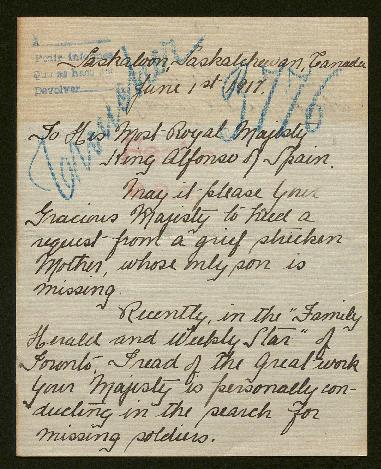 Saskatoon, Saskatchewan, Canada
June 1st 1917.
3776
To His Most Royal Majesty
King Alfonso of Spain.
May it please Your
Gracious Majesty to heed a
request from a grief stricken
Mother, whose only son is
missing.
Recently, in the "Family
Herald and Weekly Star" of
Toronto, I read of the Great work
Your Majesty is personally con-
ducting in the search for
missing soldiers.
Devolver